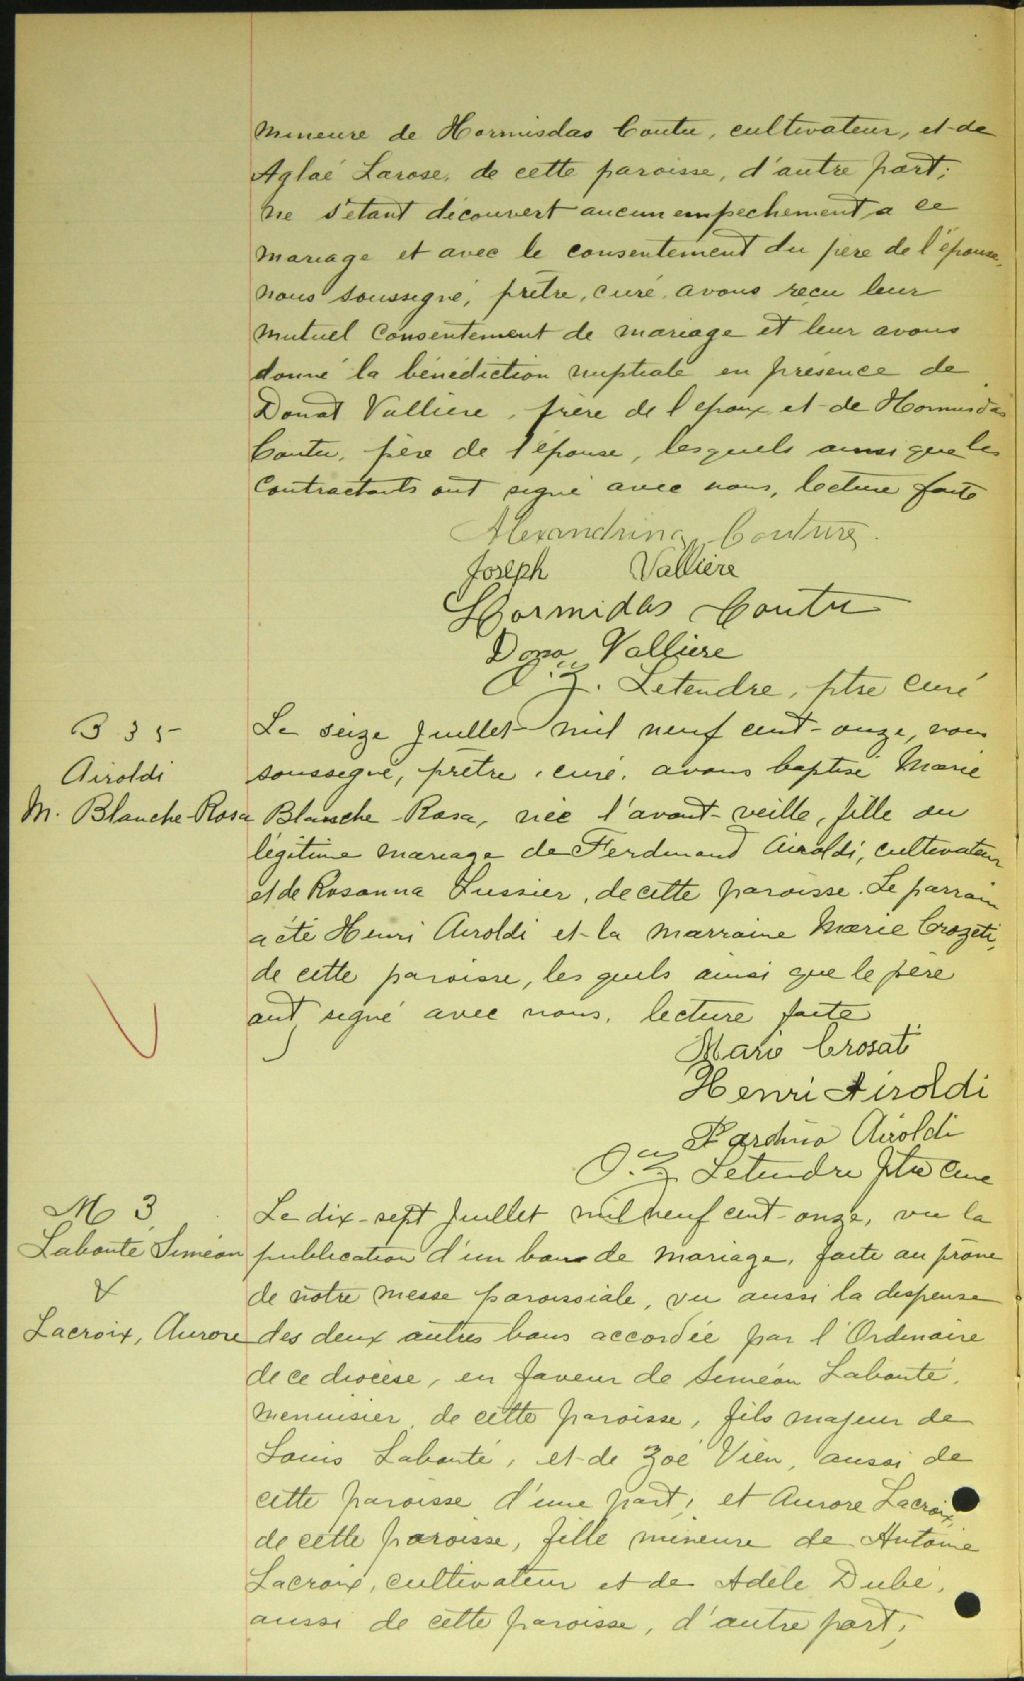 mineure de Hormisdas Coutu, cultivateur, et de
Aglaé Larose, de cette paroisse, d'autre part;
ne s'étant découvert aucun empechement a ce
mariage et avec le consentement du père de l'épouse,
nous soussigné, prêtre, curé, avons reçu leur
mutuel consentement de mariage et leur avons
donné la bénédiction nuptiale en présence de
Donat Vallière, frère de l'epoux, et de Hormisdas
Coutu, père de l'épouse, lesquels ainsi que les
contractants ont signé avec nous, lecture faite
Alexandrina Couture
Joseph Valliere
Hormidas Coutu
Dona Valliere
O. Z. Letendre, ptre curé
B 35
Airoldi
M. Blanche-Rosa
Le seize Juillet mil neuf cent-onze, nous
soussigné, prêtre, curé, avons baptisé Marie
Blanche-Rosa, née l'avant-veille, fille du
légitime mariage de Ferdinand Airoldi, cultivateur
et de Rosanna Lussier, de cette paroisse. Le parrain
a été Henri Airoldi et la marraine Marie Crozeti,
de cette paroisse, lesquels ainsi que le père
ont signé avec nous, lecture faite
Marie Crosati
Henri Airoldi
Fardino Airoldi
O. Z. Letendre ptre curé
M 3
Labonté Siméon
&
Lacroix, Aurore
Le dix-sept Juillet mil neuf cent-onze, vu la
publication d'un ban de mariage, faite au prône
de nôtre messe paroissiale, vu aussi la dispense
des deux autres bans accordée par l'Ordinaire
de ce diocèse, en faveur de Siméon Labonté,
menuisier, de cette paroisse, fils majeur de
Louis Labonté, et de Zoé Vien, aussi de
cette paroisse d'une part; et Aurore Lacroix,
de cette paroisse, fille mineure de Antoine
Lacroix, cultivateur et de Adèle Dubé,
aussi de cette paroisse, d'autre part;